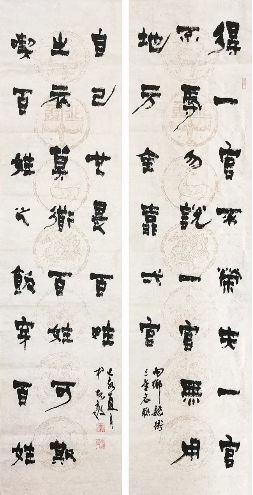 得一官不榮失一官
不辱勿說一官無用
地方全靠一官
內鄉縣衙
三堂名聯
喫百姓之飯穿百姓
之衣莫道百姓可欺
自己也是百姓